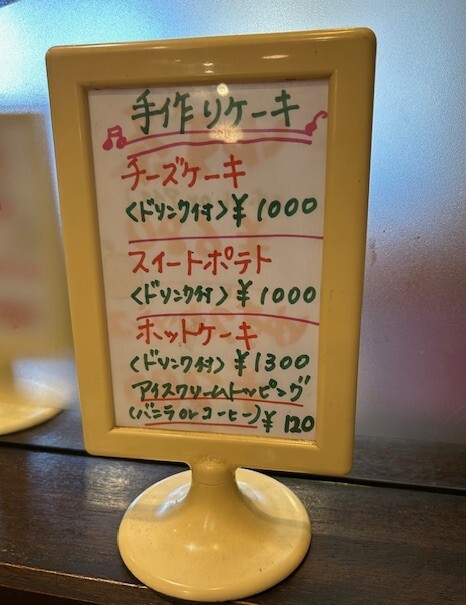 手作りケーキ
チーズケーキ
<ドリンク付>¥1000
スイートポテト
<ドリンク付>¥1000
ホットケーキ
<ドリンク付>¥1300
アイスクリームトッピング
(バニラorコーヒー)¥120